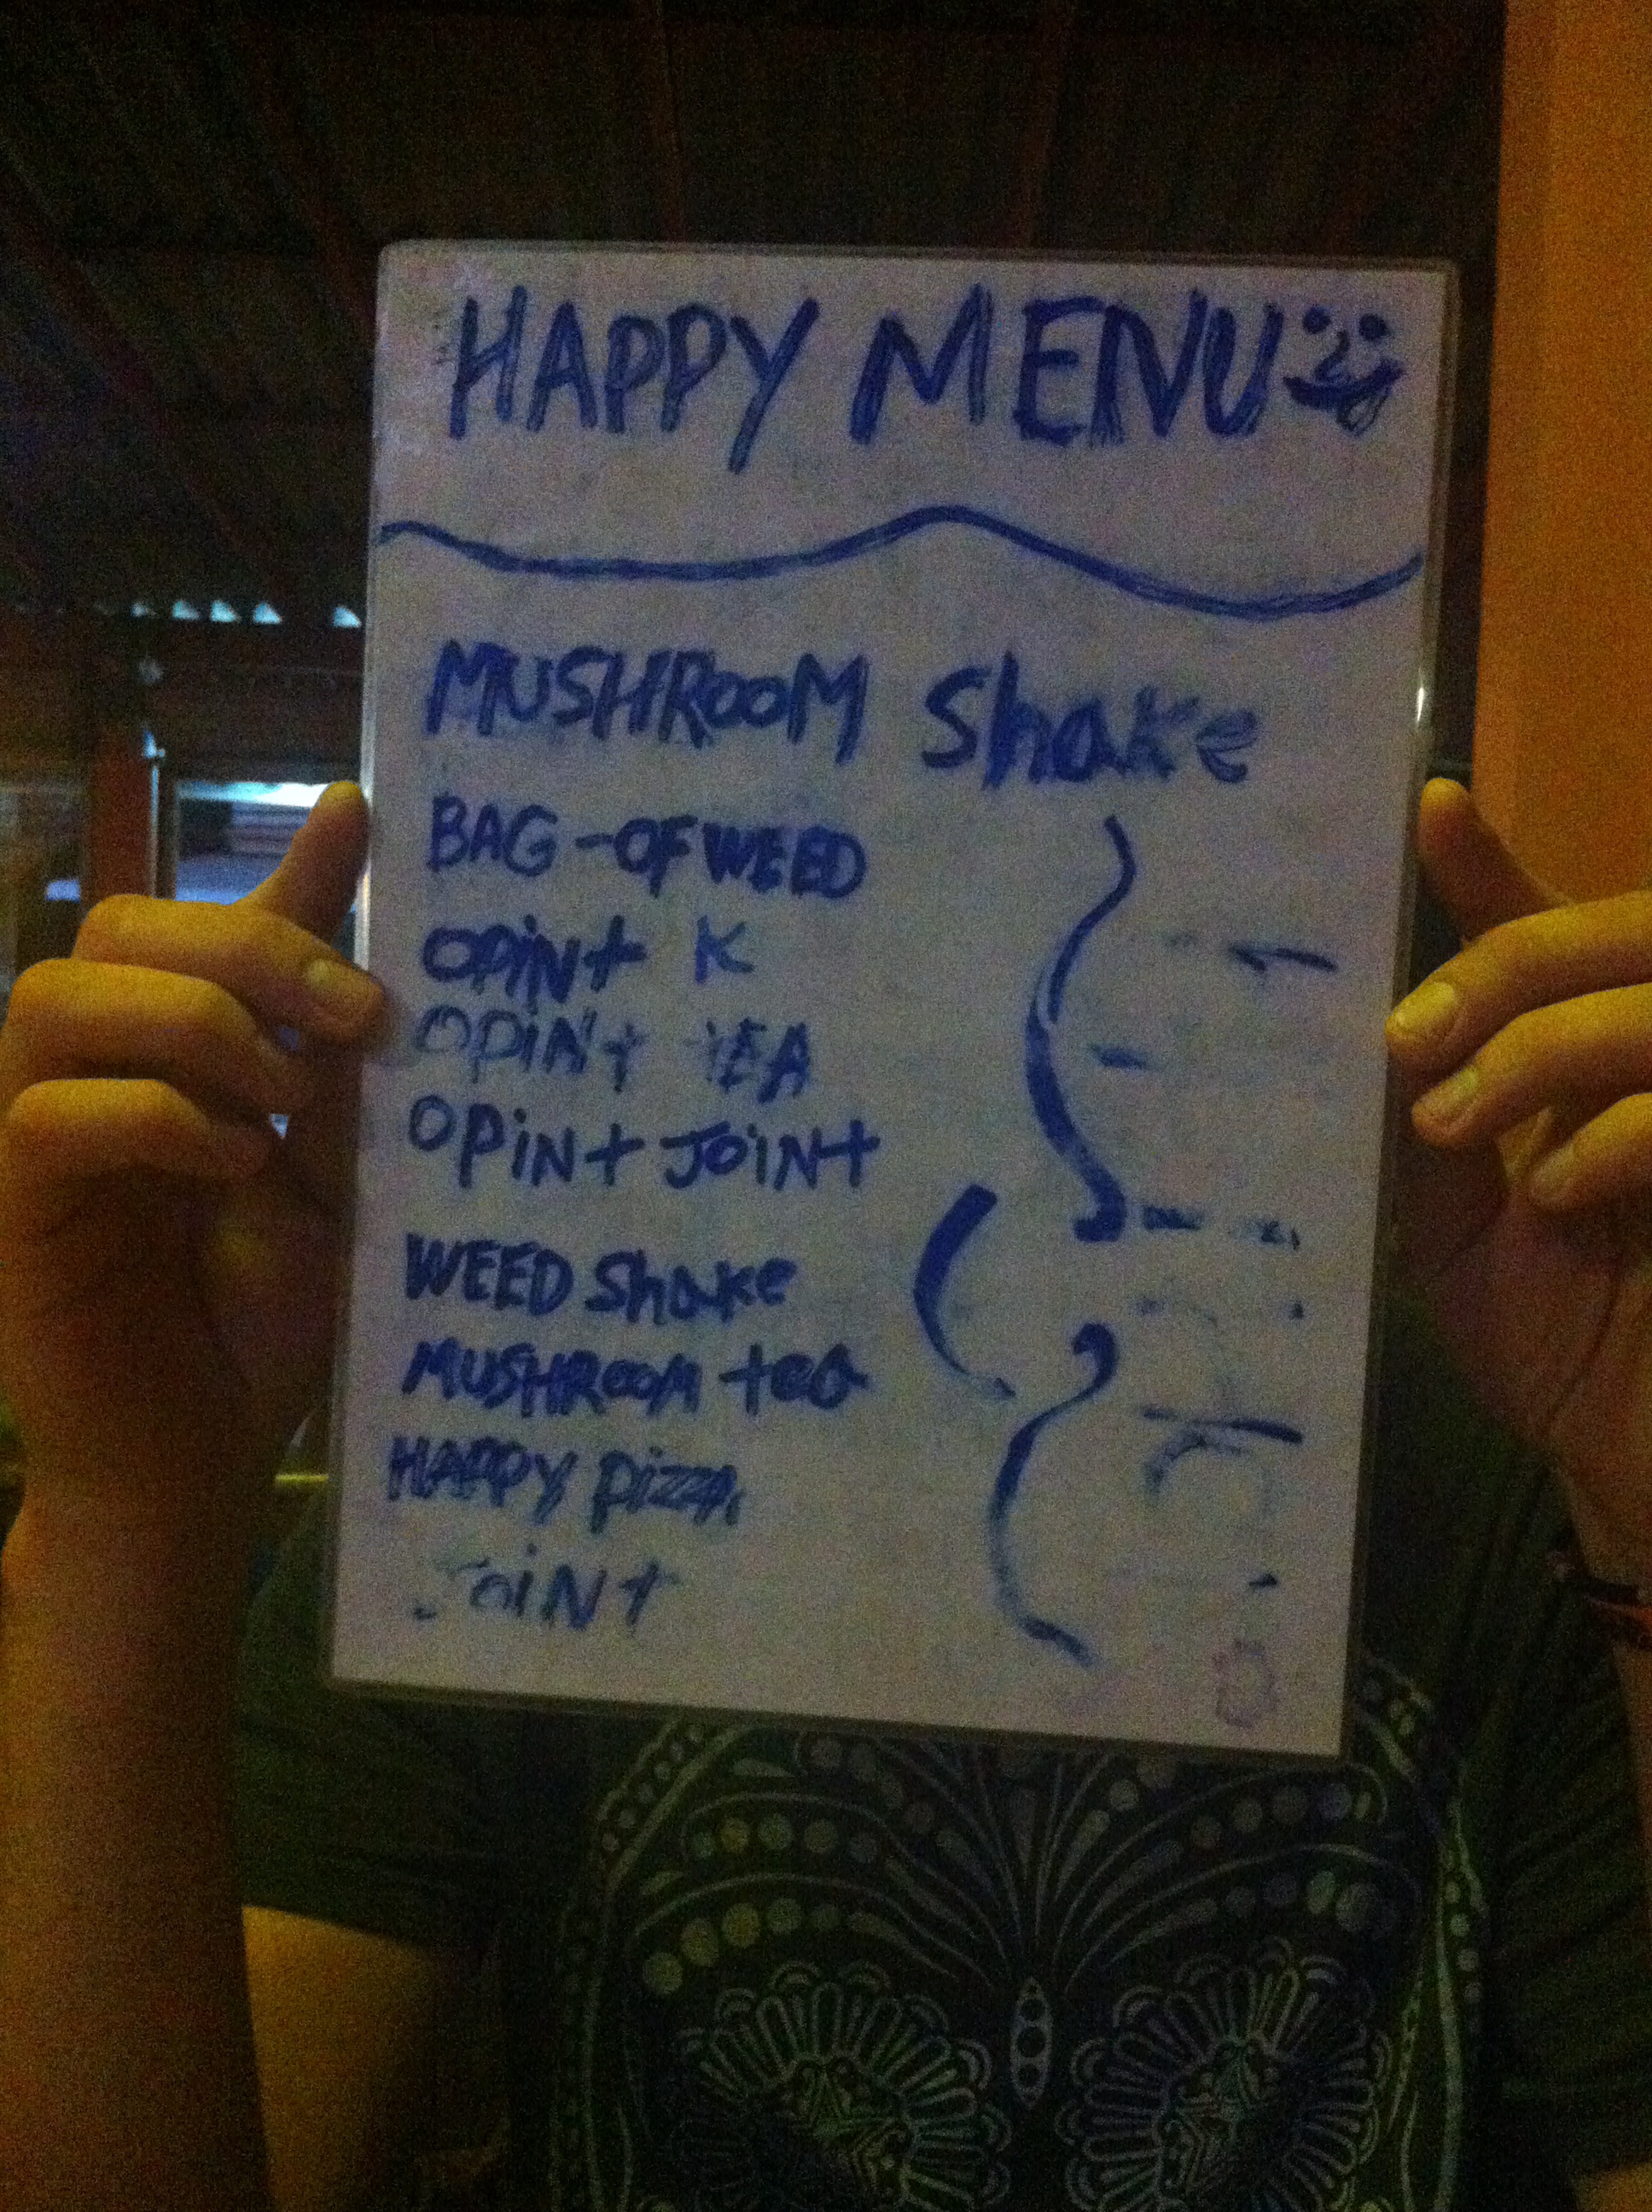 HAPPY MENU
MUSHROOM Shake
BAG-OF WEED
OPiN+ K
OPiN+ tEA
OPiN+ JOiN+
WEED Shake
MUSHROOM tea
HAPPY Pizza
JOiNt